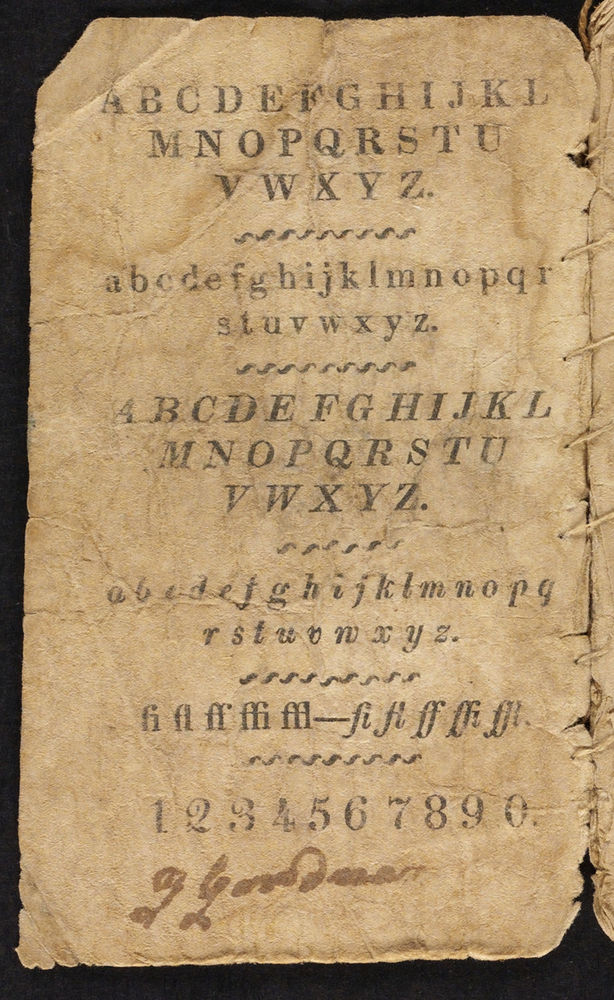 A B C D E F G H I J K L
M N O P Q R S T U
V W X Y Z.
a b c d e f g h i j k l m n o p q r
s t u v w x y z.
A B C D E F G H I J K L
M N O P Q R S T U
V W X Y Z.
a b c d e f g h i j k l m n o p q
r s t u v w x y z.
fi fl ff ffi ffl—fi fl ff ffi ffl.
1 2 3 4 5 6 7 8 9 0.